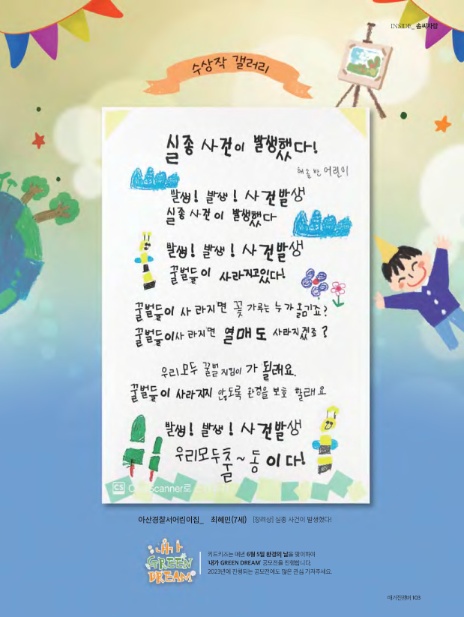 INSIDE_ 솜씨자랑
수상작 갤러리
실종 사건이 발생했다!
해솔반 어린이
발생! 발생! 사건발생
실종 사건이 발생했다
발생! 발생! 사건발생
꿀벌들이 사라지고있다!
꿀벌들이 사라지면 꽃가루는 누가 옮기죠?
꿀벌들이 사라지면 열매도 사라지겠죠?
우리모두 꿀벌 지킴이가 될래요.
꿀벌들이 사라지지 않도록 환경을 보호 할래요
발생! 발생! 사건발생
우리모두 출~동이다!
CS CamScanner로
아산경찰서어린이집_ 최혜민(7세) [장려상] 실종 사건이 발생했다!
내가 GREEN DREAM
키드키즈는 매년 6월 5일 환경의 날을 맞이하여
'내가 GREEN DREAM' 공모전을 진행합니다.
2023년에 진행되는 공모전에도 많은 관심 가져주세요.